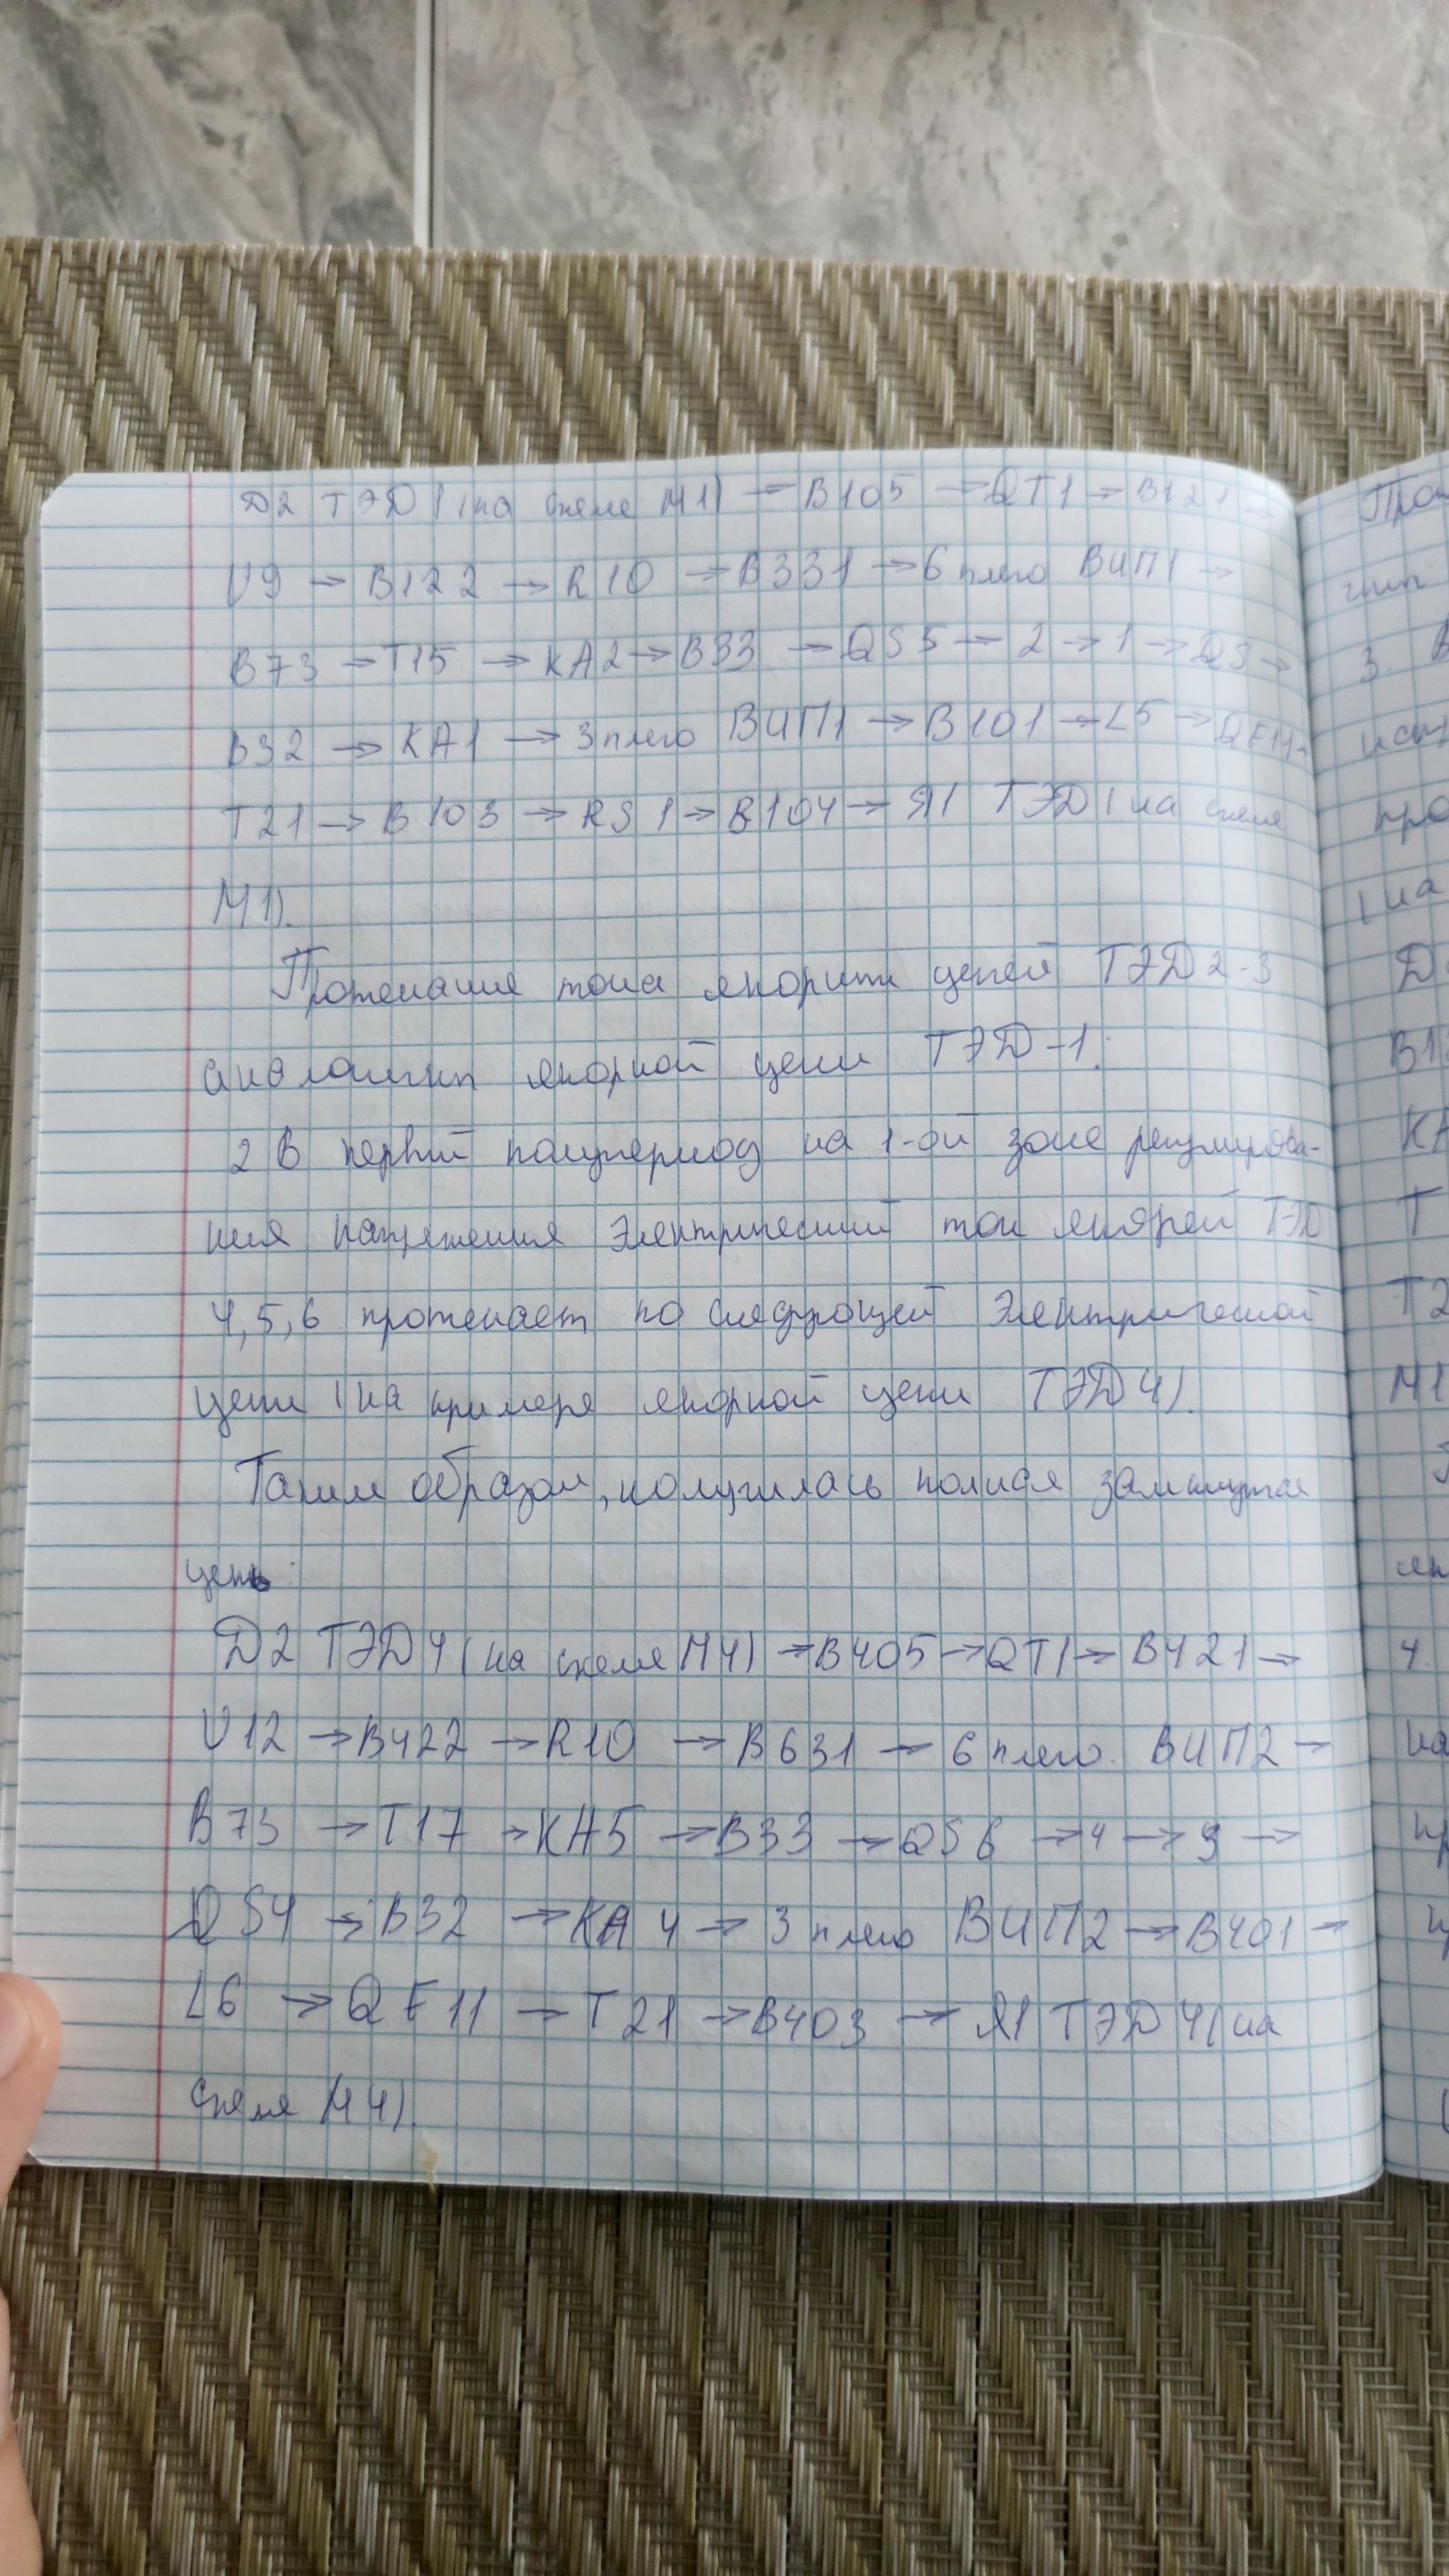 Д2 ТЭД1 (на схеме М1) → В105 → QT1 → В121 →
U9 → В122 → R10 → В331 → 6 плечо ВИП1 →
В73 → Т15 → КА2 → В33 → QS5 → 2 → 1 → QS →
В32 → КА1 → 3 плечо ВИП1 → В101 → L5 → QF11 →
Т21 → В103 → RS1 → В104 → Я1 ТЭД1 (на схеме
М1).
Протекание тока якорных цепей ТЭД2-3
аналогичн якорной цепи ТЭД-1.
2 В первый полупериод на 1-ой зоне регулирова-
ния напряжения электрический ток якорей ТЭД
4,5,6 протекает по следующей электрической
цепи (на примере якорной цепи ТЭД4).
Таким образом, получилась полная замкнутая
цепь:
Д2 ТЭД4 (на схеме М4) → В405 → QT1 → В421 →
U12 → В422 → R10 → В631 → 6 плечо ВИП2 →
В73 → Т17 → КА5 → В33 → QS6 → 4 → 3 →
QS4 → В32 → КА4 → 3 плечо ВИП2 → В401 →
L6 → QF11 → Т21 → В403 → Я1 ТЭД4 (на
схеме М4).